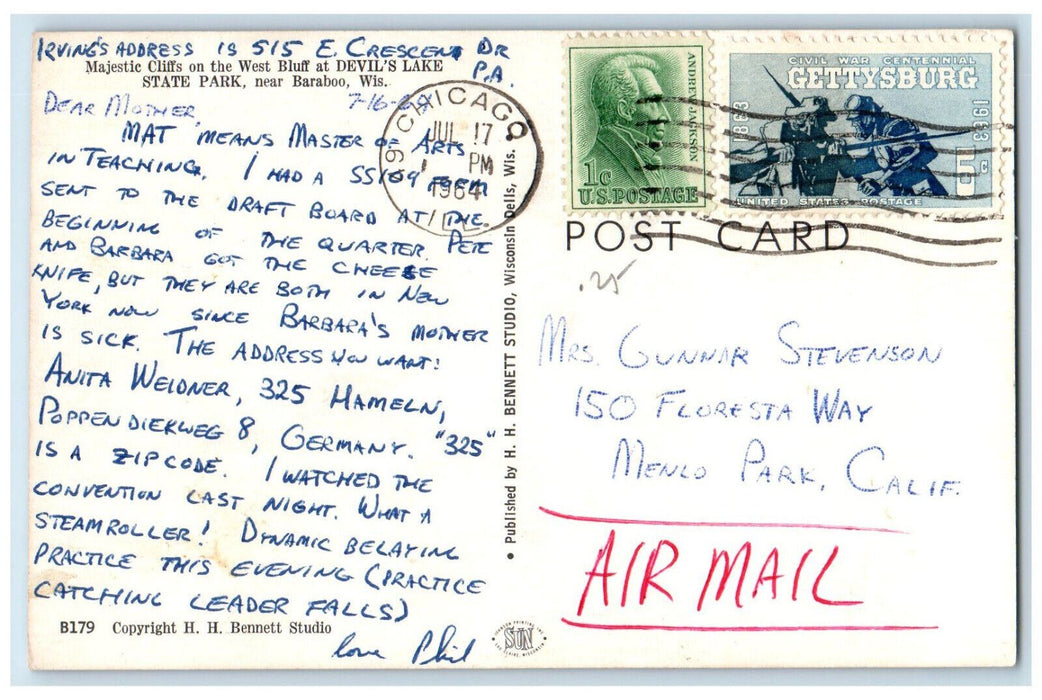 IRVING'S ADDRESS IS 515 E. CRESCENT DR
P.A.
Majestic Cliffs on the West Bluff at DEVIL'S LAKE
STATE PARK, near Baraboo, Wis.
7-16-64
DEAR MOTHER,
MAT MEANS MASTER OF ARTS
IN TEACHING. I HAD A SS109 FORM
SENT TO THE DRAFT BOARD AT THE
BEGINNING OF THE QUARTER. PETE
AND BARBARA GOT THE CHEESE
KNIFE, BUT THEY ARE BOTH IN NEW
YORK NOW SINCE BARBARA'S MOTHER
IS SICK. THE ADDRESS YOU WANT:
ANITA WEIDNER, 325 HAMELN,
POPPENDIEKWEG 8, GERMANY. "325"
IS A ZIPCODE. I WATCHED THE
CONVENTION LAST NIGHT. WHAT A
STEAMROLLER! DYNAMIC BELAYING
PRACTICE THIS EVENING (PRACTICE
CATCHING LEADER FALLS)
love Phil
B179 Copyright H. H. Bennett Studio
• Published by H. H. BENNETT STUDIO, Wisconsin Dells, Wis. •
CHICAGO
9
JUL 17
PM
1964
ANDREW JACKSON
1c
U.S. POSTAGE
CIVIL WAR CENTENNIAL
GETTYSBURG
1863
1963
5c
UNITED STATES POSTAGE
POST CARD
.25
MRS. GUNNAR STEVENSON
150 FLORESTA WAY
MENLO PARK, CALIF.
AIR MAIL
SUN